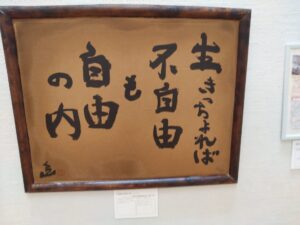 生きっちょれば
不自由
も
自由
の内